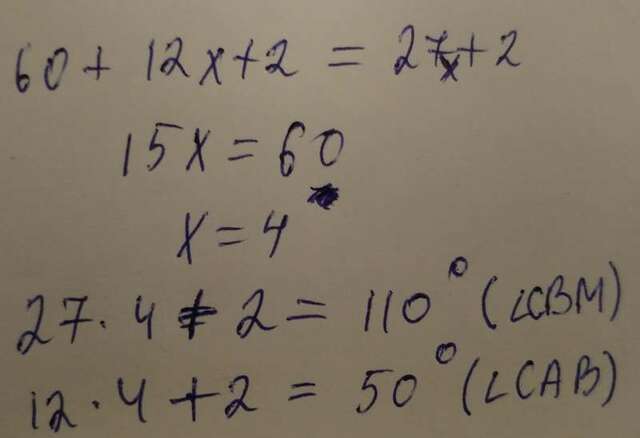 60 + 12x+2 = 27x+2
15x = 60
x = 4
27 · 4 + 2 = 110° (∠CBM)
12 · 4 + 2 = 50° (∠CAB)